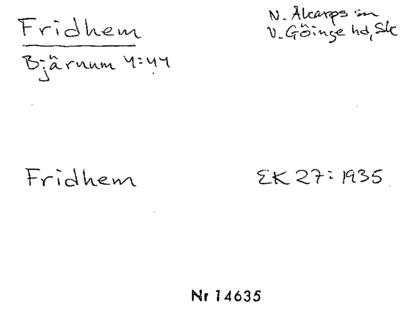 Fridhem
N. Åkarps sn
Bjärnum 4:44
V. Göinge hd, Sk
Fridhem
EK 27: 1935
Nr 14635